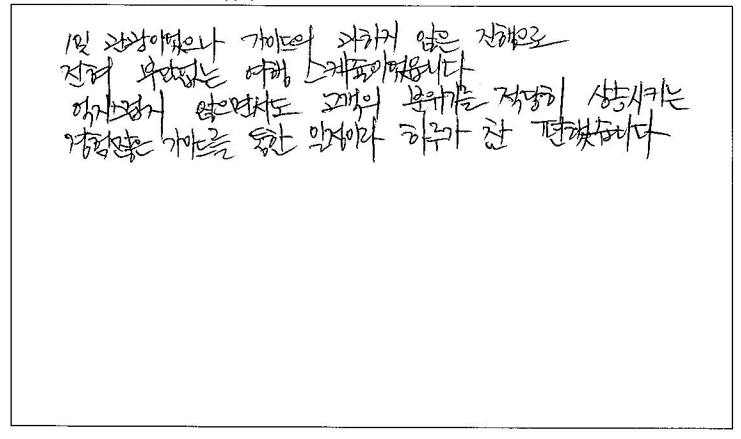 1일 관광이었으나 가이드의 과하지 않은 진행으로
전혀 부담없는 여행 스케줄이었읍니다
억지스럽지 않으면서도 고객의 분위기를 적당히 상승시키는
경험많은 가이드를 통한 일정이라 하루가 참 편했습니다